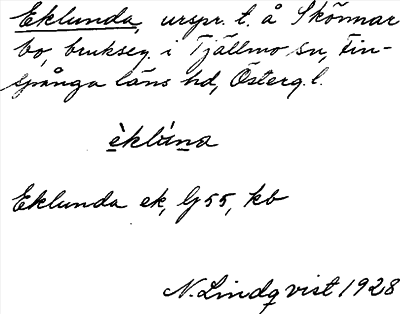 Eklunda, urspr. t. å Skönnar
bo, bruksеg. i Tjällmo sn, Fin-
spånga läns hd, Österg. l.
èkluna
Eklunda ek, G 55, kb
N. Lindqvist 1928